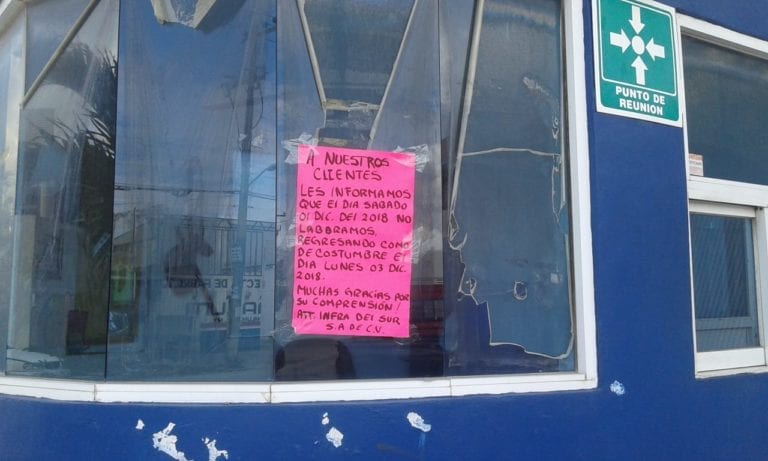 A NUESTROS
CLIENTES
LES INFORMAMOS
QUE El DIA SABADO
01 DIC. DEl 2018 NO
LABORAMOS,
REGRESANDO COMO
DE COSTUMBRE El
DIA LUNES 03 DIC.
2018.
MUCHAS GRACIAS POR
SU COMPRENSIÓN!
ATT. INFRA DEl SUR
S.A DE C.V.
PUNTO DE
REUNION